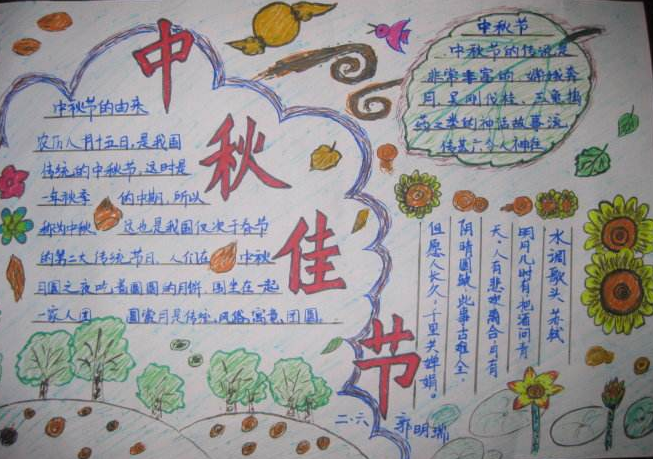 中秋佳节
中秋节的由来
农历八月十五日,是我国
传统的中秋节,这时是
一年秋季 的中期,所以
称为中秋 这也是我国仅次于春节
的第二大传统节日,人们在 中秋
月圆之夜吃着圆圆的月饼,围坐在一起
一家人团 圆赏月是传统,风俗,寓意,团圆.
中秋节
中秋节的传说是
非常丰富的,嫦娥奔
月,吴刚伐桂,玉兔捣
药之类的神话故事流
传甚
水调歌头 苏轼
明月几时有把酒问青
天。人有悲欢离合,月有
阴晴圆缺,此事古难全,
但愿人长久,千里共婵娟。
二.六 郭明瑞